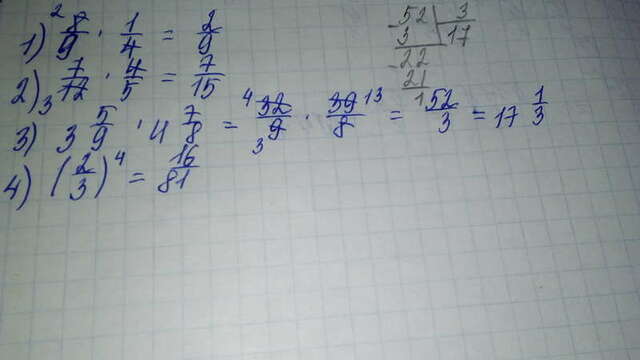 1) ²8/9 · 1/4 = 2/9
2) 7/12 ₃ · 4/5 = 7/15
3) 3 5/9 · 4 7/8 = ⁴32/9₃ · 39¹³/8 = 52/3 = 17 1/3
4) (2/3)⁴ = 16/81
-52 | 3
3 | 17
-22
21
1